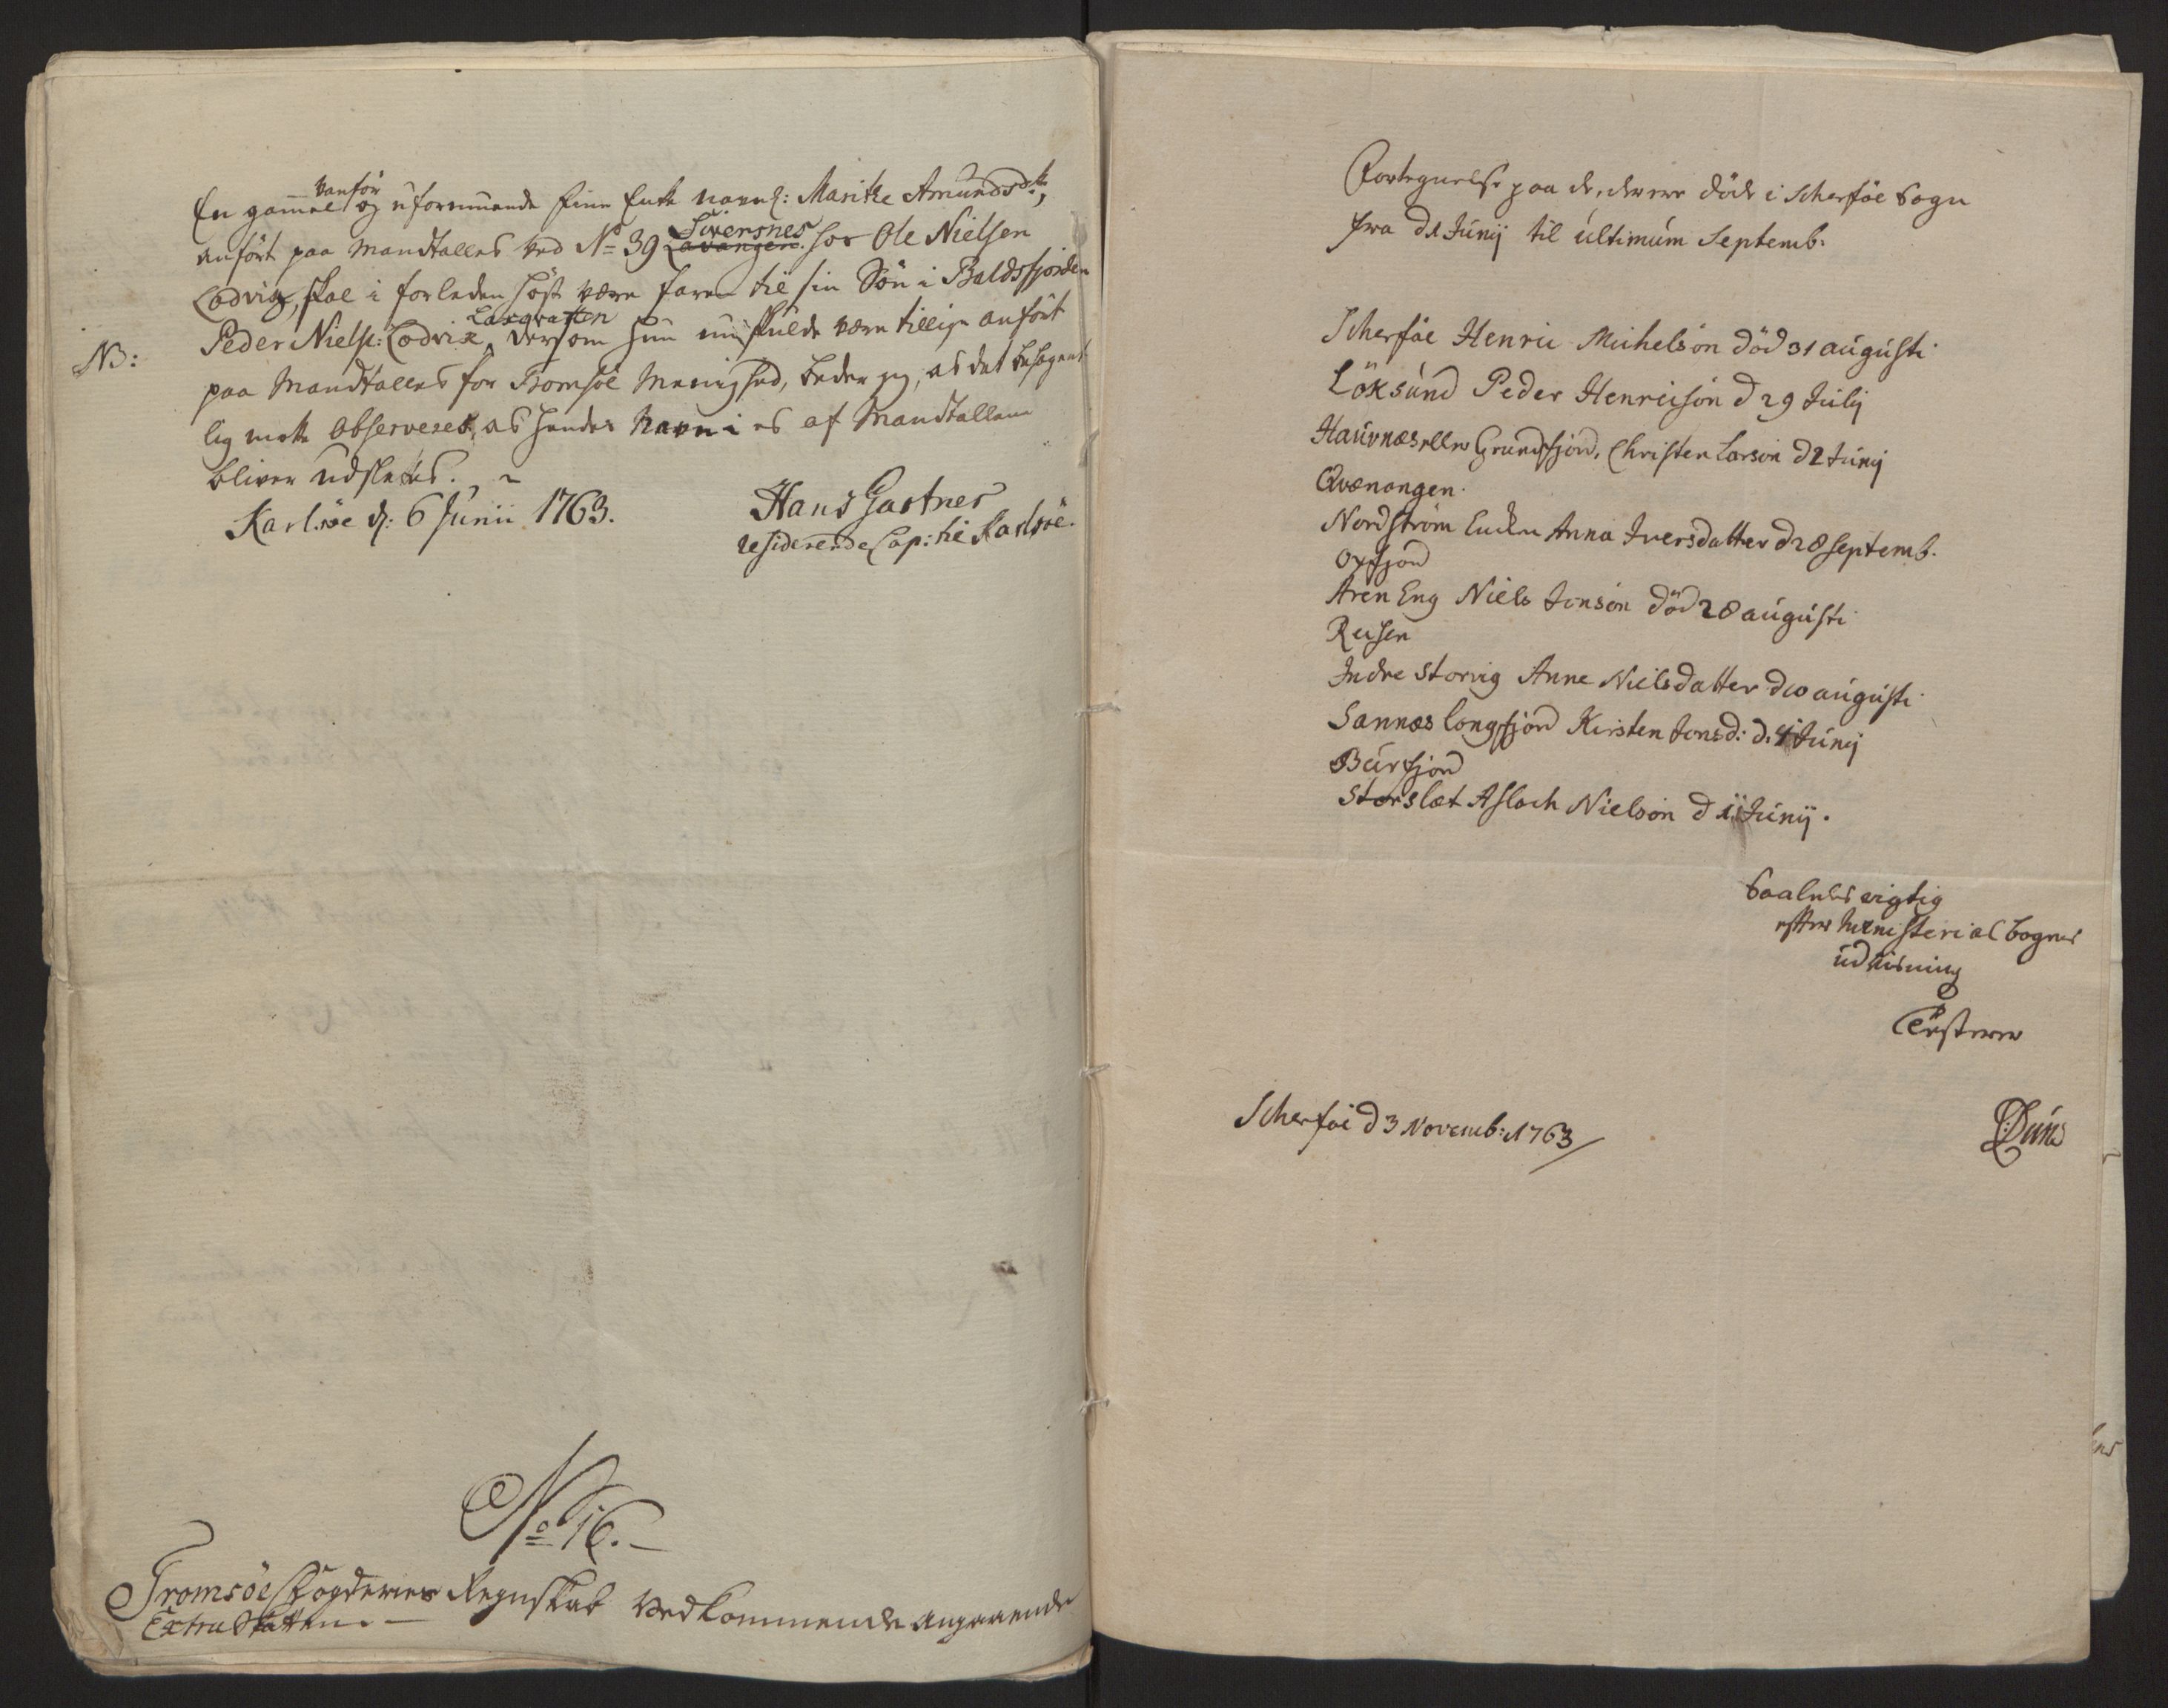 En gamel vanför og uformuende Finn Enke navnl: Maritze Amundsdtr,
anfört paa Mandtallet ved No 39 Siversnes Lavangen. hos Ole Nielsen
Lodvig, skal i forleden Höst være faren til sin Sön i Baldsfjorden
NB: Peder Niels: Lodvix Laxvatten, dersom hun nu skulde være tillige anfört
paa Mandtallet for Tromsöe Menighed, beder jeg, at det behagent
lig motte observeres, at hendes Navn i et af Mandtallene
bliver udslettet.
Karlsöe d: 6 Junii 1763.
Hans Gastner
residerende Cap: til Karlsöe.
No 16.
Tromsöe Fogderies Regnskab vedkommende angaaende
Extra Skatten.
Fortegnelse paa de, der ere döde i Scherföe Sogn
fra d 1 Junij til ultimum Septemb:
Scherföe Henric Michelsön död 31 augusti
Löksund Peder Henricsön d 29 Julij
Hauvnæs eller Grundfjord, Christen Larsön d 2 Junij
Qvænangen.
Nordström Enken Anna Iversdatter d 28 septemb.
Oxfjord
Aren Eng Niels Jonsön död 28 augusti
Reisen
Indre Storvig Anne Nielsdatter d 10 augusti
Sannæs longfjord Kirsten Jonsd: d. 4 Junij
Burfjord
Storslæt Aslach Nielsön d 11 Junij.
Saaledes rigtig
efter ministerial bogens
udvisning
Testerer
Scherföe d 3 Novemb: 1763